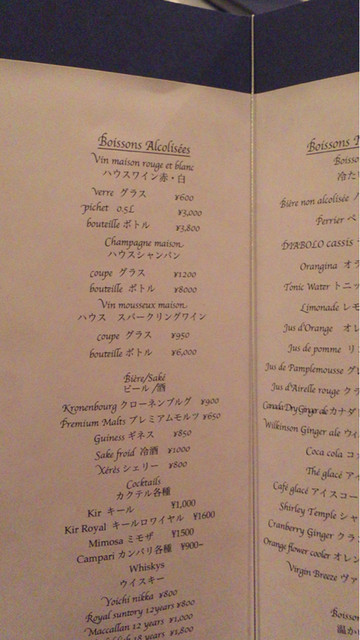 Boissons Alcolisées
Vin maison rouge et blanc
ハウスワイン赤・白
Verre グラス ¥600
pichet 0.5L ¥3,000
bouteille ボトル ¥3,800
Champagne maison
ハウスシャンパン
coupe グラス ¥1200
bouteille ボトル ¥8000
Vin mousseux maison
ハウス スパークリングワイン
coupe グラス ¥950
bouteille ボトル ¥6,000
Bière/Saké
ビール/酒
Kronenbourg クローネンブルグ ¥900
Premium Malts プレミアムモルツ ¥650
Guiness ギネス ¥850
Sake froid 冷酒 ¥1000
Xérès シェリー ¥800
Cocktails
カクテル各種
Kir キール ¥1,000
Kir Royal キールロワイヤル ¥1600
Mimosa ミモザ ¥1500
Campari カンパリ各種 ¥900~
Whiskys
ウイスキー
Yoichi nikka ¥800
Royal suntory 12years ¥800
Maccallan 12 years ¥1,000
18 years ¥1,800
Boissons
冷た
Bière non alcolisée
Perrier ペ
DIABOLO cassis
Orangina オラ
Tonic Water トニッ
Limonade レモ
Jus d'Orange オレ
Jus de pomme リ
Jus de Pamplemousse グレ
Jus d'Airelle rouge クラ
Canada Dry Ginger ale カナダ
Wilkinson Ginger ale ウィ
Coca cola コ
Thé glacé アイ
Café glacé アイスコー
Shirley Temple シャ
Cranberry Ginger クラ
Orange flower cooler オレン
Virgin Breeze ヴァ
温か